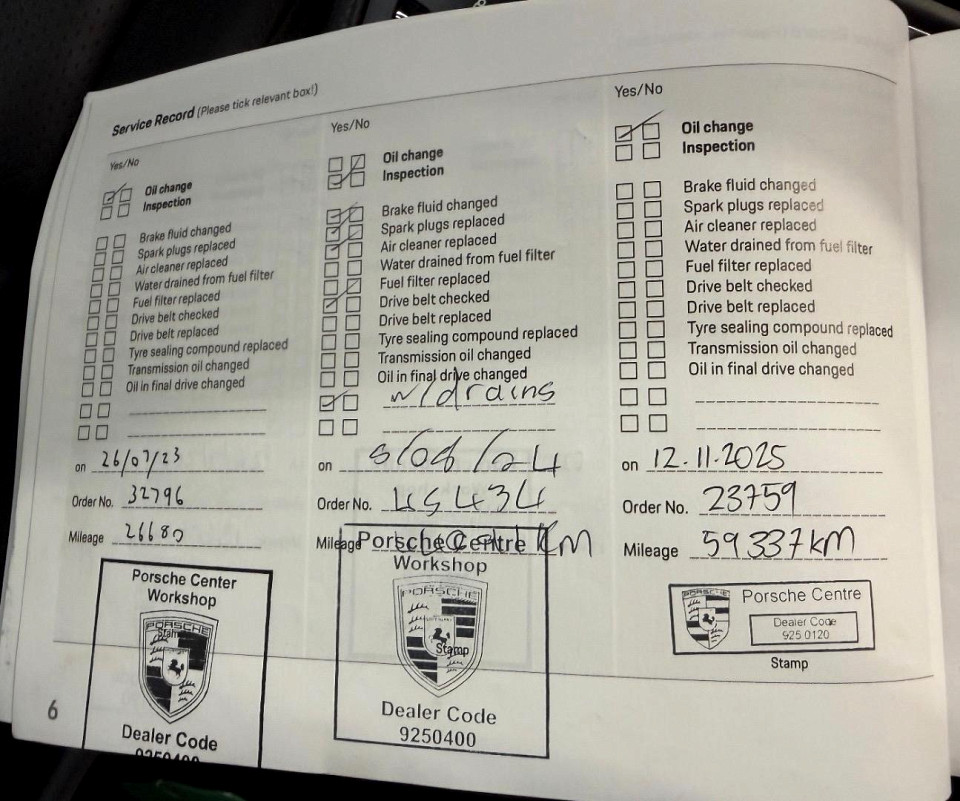 Service Record (Please tick relevant box!)
Yes/No
Oil change
Inspection
Brake fluid changed
Spark plugs replaced
Air cleaner replaced
Water drained from fuel filter
Fuel filter replaced
Drive belt checked
Drive belt replaced
Tyre sealing compound replaced
Transmission oil changed
Oil in final drive changed
on 26/07/23
Order No. 32796
Mileage 26680
Porsche Center
Workshop
PORSCHE
Stamp
Dealer Code
9250400
6
Yes/No
Oil change
Inspection
Brake fluid changed
Spark plugs replaced
Air cleaner replaced
Water drained from fuel filter
Fuel filter replaced
Drive belt checked
Drive belt replaced
Tyre sealing compound replaced
Transmission oil changed
Oil in final drive changed
w/drains
on 8/08/24
Order No. 45434
Mileage KM
Porsche Centre
Workshop
PORSCHE
Stamp
Dealer Code
9250400
Yes/No
Oil change
Inspection
Brake fluid changed
Spark plugs replaced
Air cleaner replaced
Water drained from fuel filter
Fuel filter replaced
Drive belt checked
Drive belt replaced
Tyre sealing compound replaced
Transmission oil changed
Oil in final drive changed
on 12.11.2025
Order No. 23759
Mileage 59337KM
PORSCHE
Porsche Centre
Dealer Code
925 0120
Stamp